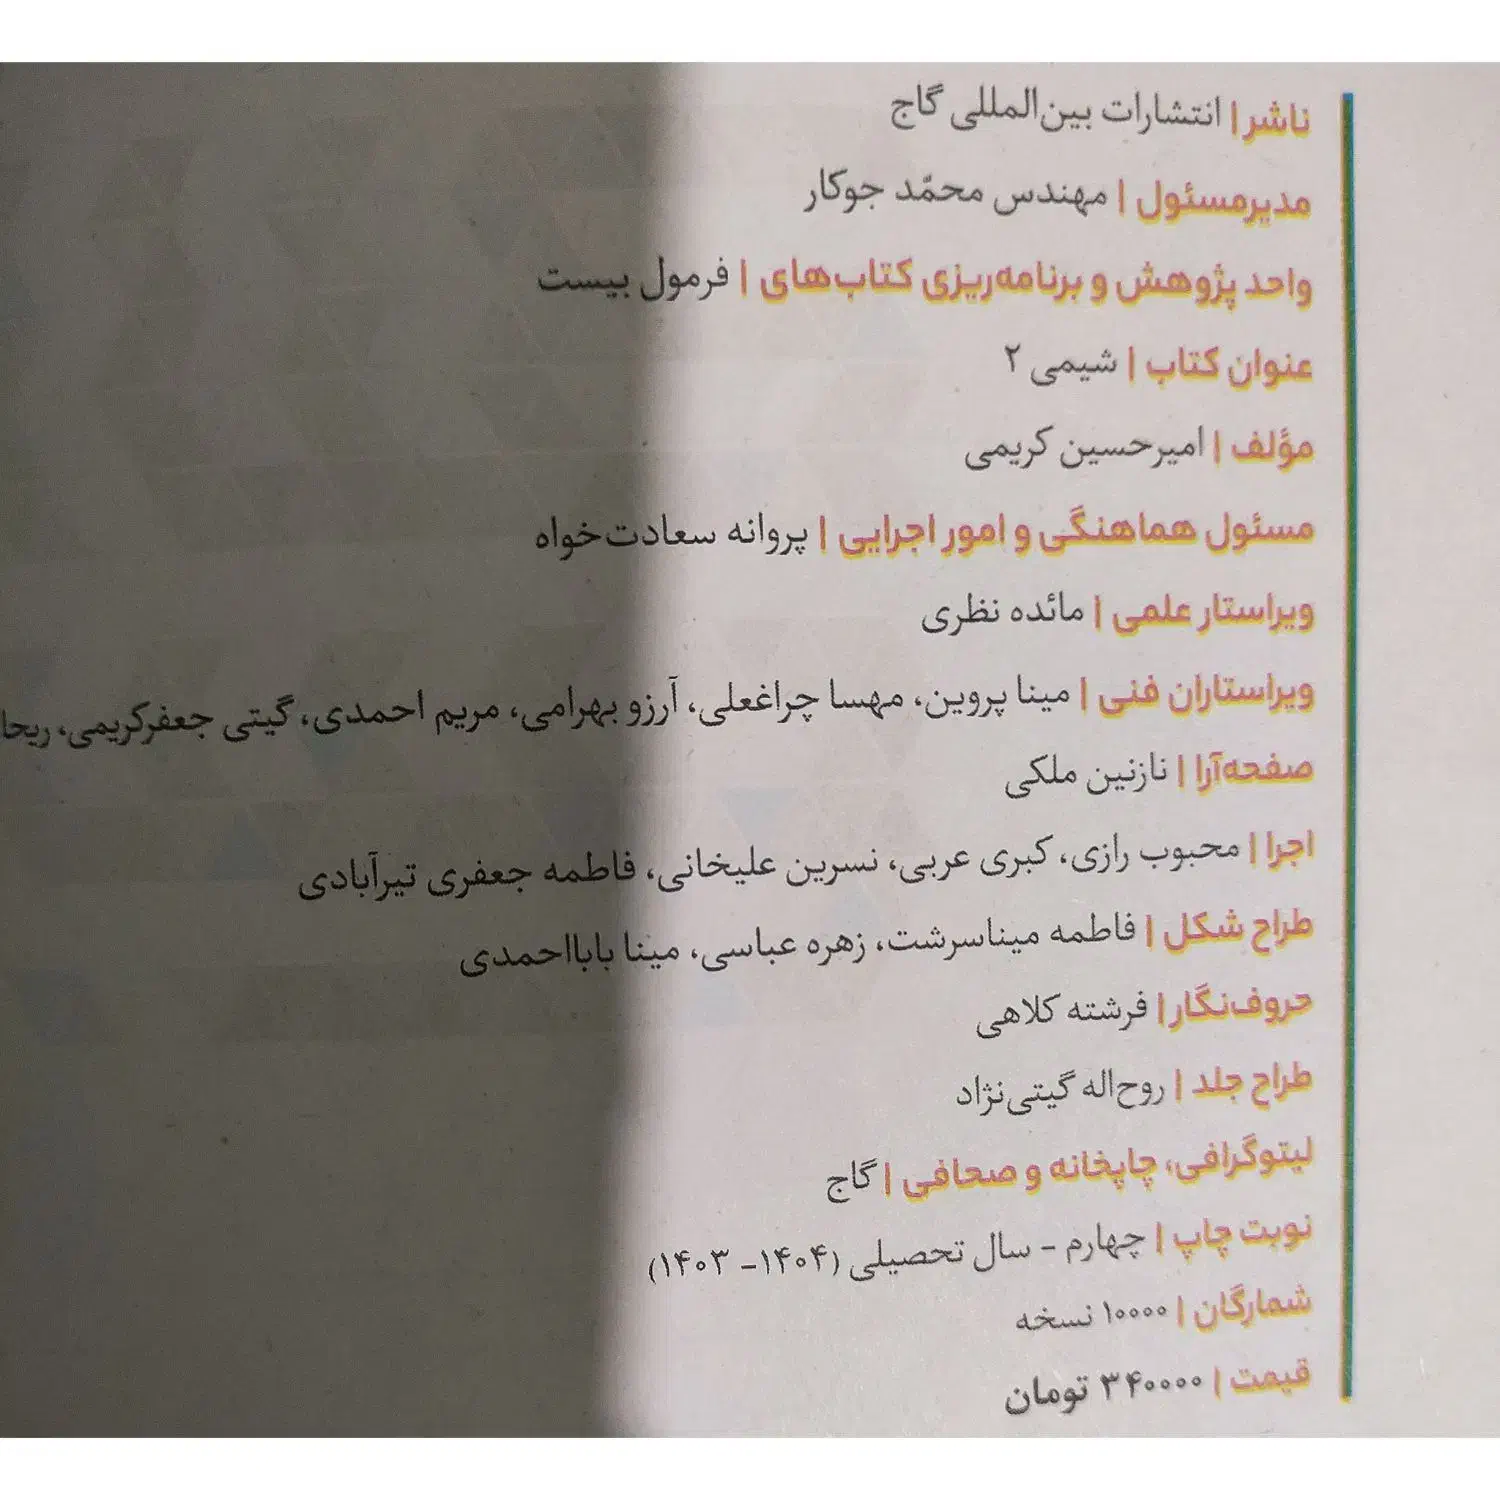 ناشر | انتشارات بین‌المللی گاج
مدیرمسئول | مهندس محمّد جوکار
واحد پژوهش و برنامه‌ریزی کتاب‌های | فرمول بیست
عنوان کتاب | شیمی ۲
مؤلف | امیرحسین کریمی
مسئول هماهنگی و امور اجرایی | پروانه سعادت‌خواه
ویراستار علمی | مائده نظری
ویراستاران فنی | مینا پروین، مهسا چراغعلی، آرزو بهرامی، مریم احمدی، گیتی جعفرکریمی، ریحا
صفحه‌آرا | نازنین ملکی
اجرا | محبوب رازی، کبری عربی، نسرین علیخانی، فاطمه جعفری تیرآبادی
طراح شکل | فاطمه میناسرشت، زهره عباسی، مینا بابااحمدی
حروف‌نگار | فرشته کلاهی
طراح جلد | روح‌اله گیتی‌نژاد
لیتوگرافی، چاپخانه و صحافی | گاج
نوبت چاپ | چهارم - سال تحصیلی (۱۴۰۴- ۱۴۰۳)
شمارگان | ۱۰۰۰۰ نسخه
قیمت | ۳۴۰۰۰۰ تومان